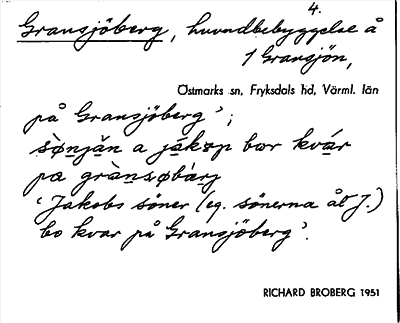 4.
Gransjöberg, huvudbebyggelse å
1 Gransjön,
Östmarks sn, Fryksdals hd, Värml. län
på Gransjöberg';
sø̀njǎn a jákɔp bœr kvár
pœ grànsøbàrj
'Jakobs söner (eg. sönerna åt J.)
bo kvar på Gransjöberg'.
RICHARD BROBERG 1951